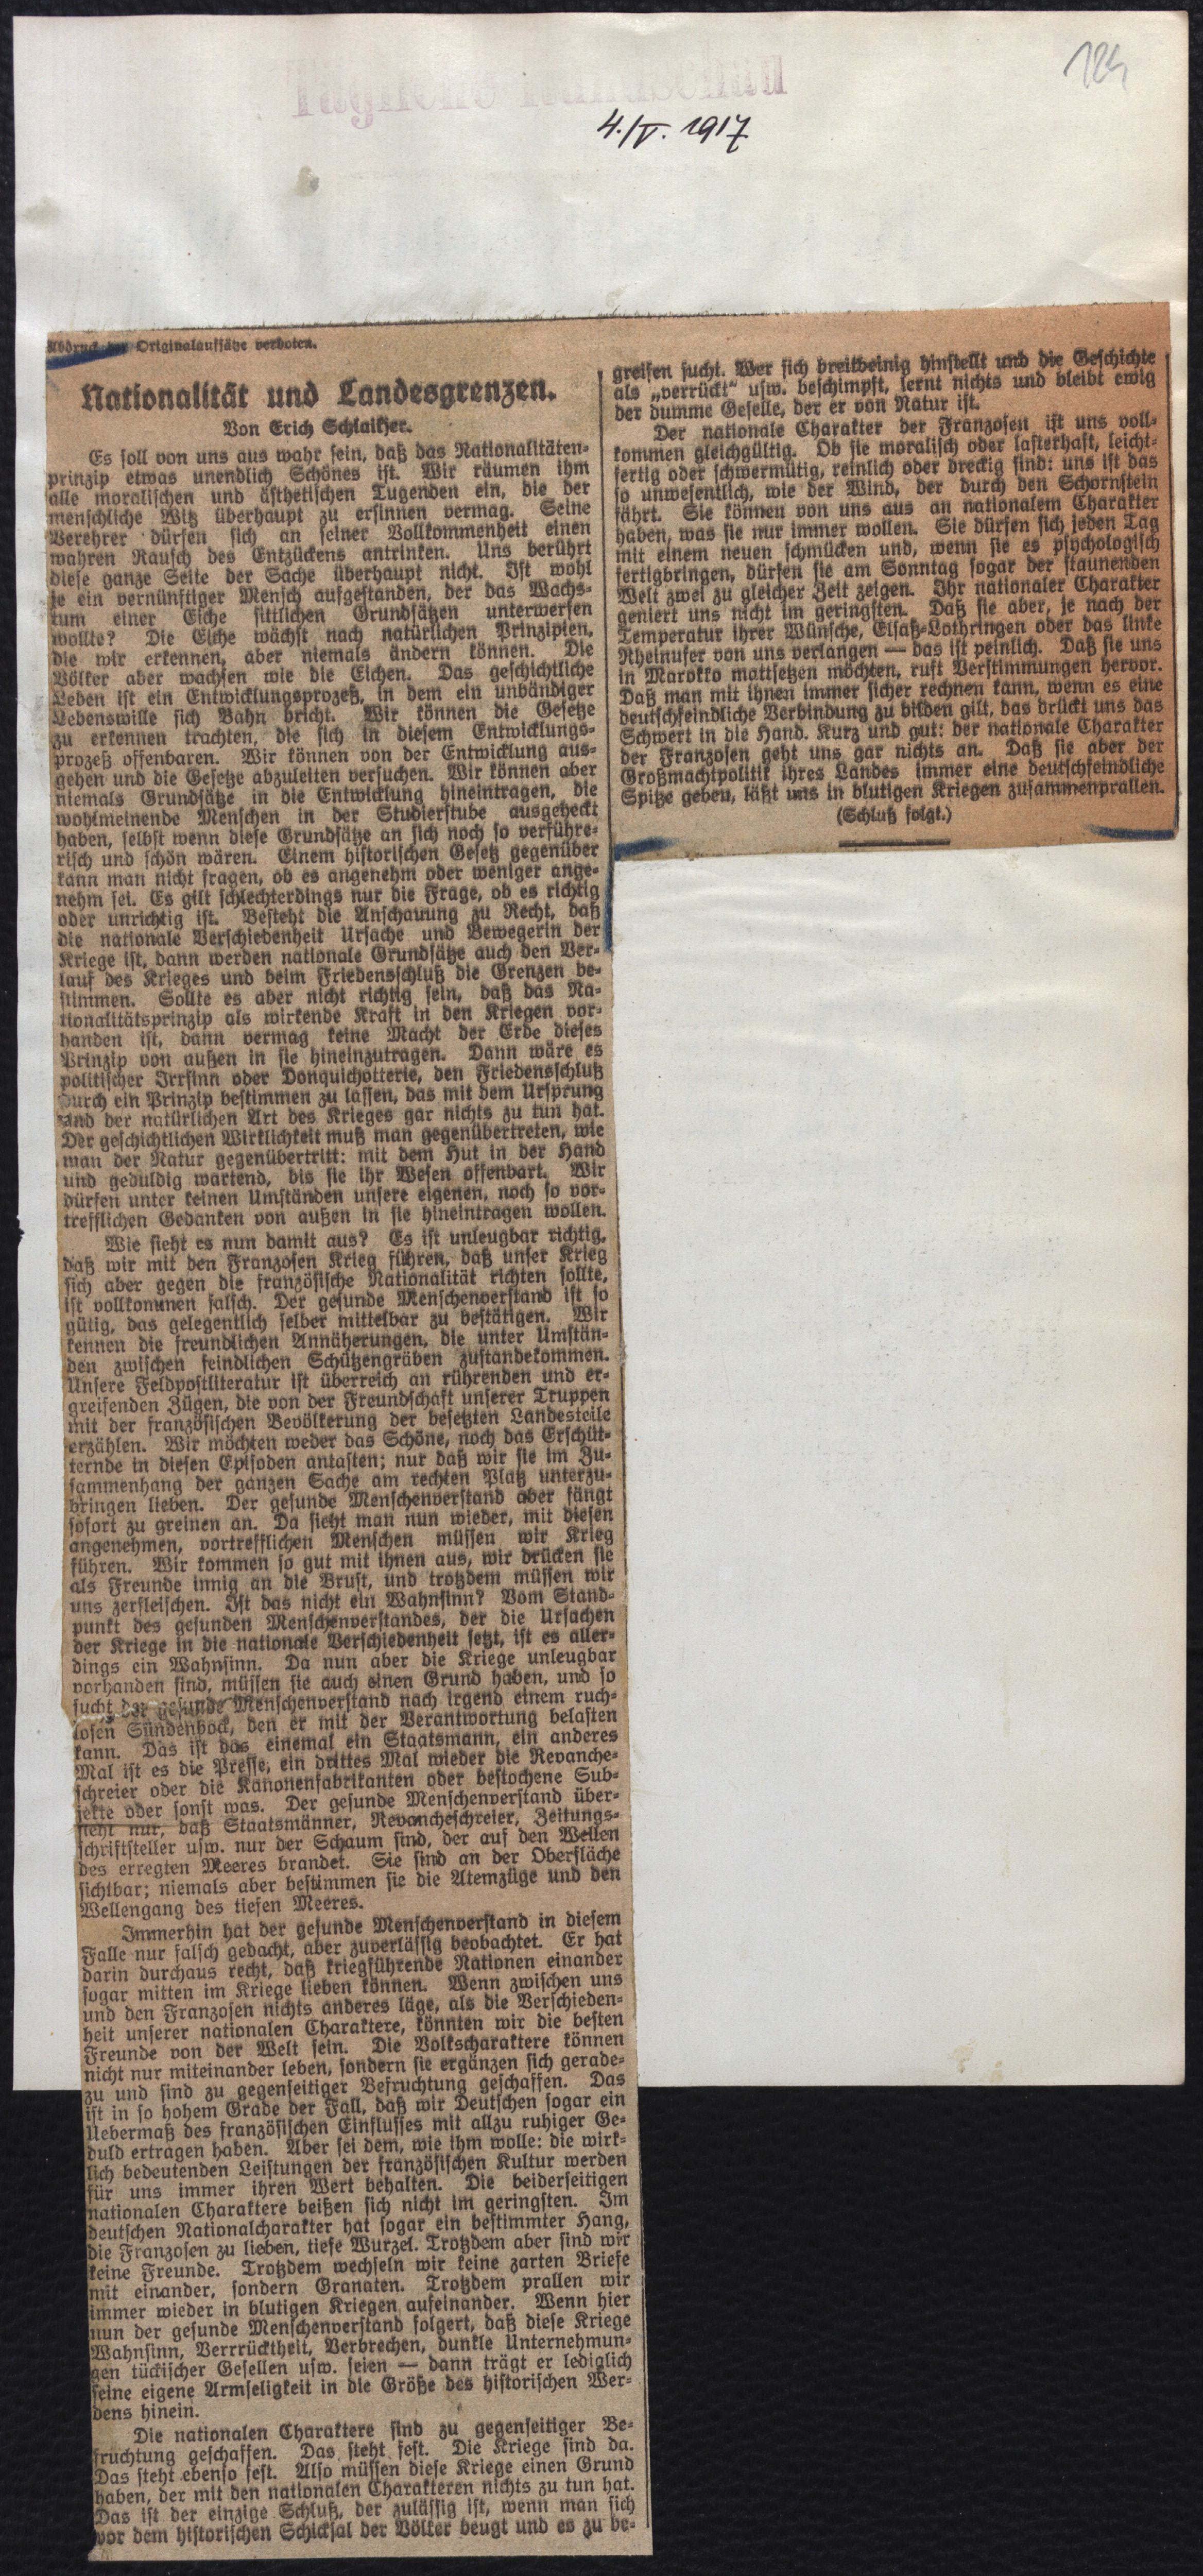 Tägliche Rundschau
124
4./V. 1917
Abdruck der Originalaufsätze verboten.
Nationalität und Landesgrenzen.
Von Erich Schlaikjer.
Es soll von uns aus wahr sein, daß das Nationalitäten-
prinzip etwas unendlich Schönes ist. Wir räumen ihm
alle moralischen und ästhetischen Tugenden ein, die der
menschliche Witz überhaupt zu ersinnen vermag. Seine
Verehrer dürfen sich an seiner Vollkommenheit einen
wahren Rausch des Entzückens antrinken. Uns berührt
diese ganze Seite der Sache überhaupt nicht. Ist wohl
je ein vernünftiger Mensch aufgestanden, der das Wachs-
tum einer Eiche sittlichen Grundsätzen unterwerfen
wollte? Die Eiche wächst nach natürlichen Prinzipien,
die wir erkennen, aber niemals ändern können. Die
Völker aber wachsen wie die Eichen. Das geschichtliche
Leben ist ein Entwicklungsprozeß, in dem ein unbändiger
Lebenswille sich Bahn bricht. Wir können die Gesetze
zu erkennen trachten, die sich in diesem Entwicklungs-
prozeß offenbaren. Wir können von der Entwicklung aus-
gehen und die Gesetze abzuleiten versuchen. Wir können aber
niemals Grundsätze in die Entwicklung hineintragen, die
wohlmeinende Menschen in der Studierstube ausgeheckt
haben, selbst wenn diese Grundsätze an sich noch so verführe-
risch und schön wären. Einem historischen Gesetz gegenüber
kann man nicht fragen, ob es angenehm oder weniger ange-
nehm sei. Es gilt schlechterdings nur die Frage, ob es richtig
oder unrichtig ist. Besteht die Anschauung zu Recht, daß
die nationale Verschiedenheit Ursache und Bewegerin der
Kriege ist, dann werden nationale Grundsätze auch den Ver-
lauf des Krieges und beim Friedensschluß die Grenzen be-
stimmen. Sollte es aber nicht richtig sein, daß das Na-
tionalitätsprinzip als wirkende Kraft in den Kriegen vor-
handen ist, dann vermag keine Macht der Erde dieses
Prinzip von außen in sie hineinzutragen. Dann wäre es
politischer Irrsinn oder Donquichotterie, den Friedensschluß
durch ein Prinzip bestimmen zu lassen, das mit dem Ursprung
und der natürlichen Art des Krieges gar nichts zu tun hat.
Der geschichtlichen Wirklichkeit muß man gegenübertreten, wie
man der Natur gegenübertritt: mit dem Hut in der Hand
und geduldig wartend, bis sie ihr Wesen offenbart. Wir
dürfen unter keinen Umständen unsere eigenen, noch so vor-
trefflichen Gedanken von außen in sie hineintragen wollen.
Wie sieht es nun damit aus? Es ist unleugbar richtig,
daß wir mit den Franzosen Krieg führen, daß unser Krieg
sich aber gegen die französische Nationalität richten sollte,
ist vollkommen falsch. Der gesunde Menschenverstand ist so
gütig, das gelegentlich selber mittelbar zu bestätigen. Wir
kennen die freundlichen Annäherungen, die unter Umstän-
den zwischen feindlichen Schützengräben zustandekommen.
Unsere Feldpostliteratur ist überreich an rührenden und er-
greifenden Zügen, die von der Freundschaft unserer Truppen
mit der französischen Bevölkerung der besetzten Landesteile
erzählen. Wir möchten weder das Schöne, noch das Erschüt-
ternde in diesen Episoden antasten; nur daß wir sie im Zu-
sammenhang der ganzen Sache am rechten Platz unterzu-
bringen lieben. Der gesunde Menschenverstand aber fängt
sofort zu greinen an. Da sieht man nun wieder, mit diesen
angenehmen, vortrefflichen Menschen müssen wir Krieg
führen. Wir kommen so gut mit ihnen aus, wir drücken sie
als Freunde innig an die Brust, und trotzdem müssen wir
uns zerfleischen. Ist das nicht ein Wahnsinn? Vom Stand-
punkt des gesunden Menschenverstandes, der die Ursachen
der Kriege in die nationale Verschiedenheit setzt, ist es aller-
dings ein Wahnsinn. Da nun aber die Kriege unleugbar
vorhanden sind, müssen sie auch einen Grund haben, und so
sucht der gesunde Menschenverstand nach irgend einem ruch-
losen Sündenbock, den er mit der Verantwortung belasten
kann. Das ist das einemal ein Staatsmann, ein anderes
Mal ist es die Presse, ein drittes Mal wieder die Revanche-
schreier oder die Kanonenfabrikanten oder bestochene Sub-
jekte oder sonst was. Der gesunde Menschenverstand über-
sieht nur, daß Staatsmänner, Revancheschreier, Zeitungs-
schriftsteller usw. nur der Schaum sind, der auf den Wellen
des erregten Meeres brandet. Sie sind an der Oberfläche
sichtbar; niemals aber bestimmen sie die Atemzüge und den
Wellengang des tiefen Meeres.
Immerhin hat der gesunde Menschenverstand in diesem
Falle nur falsch gedacht, aber zuverlässig beobachtet. Er hat
darin durchaus recht, daß kriegführende Nationen einander
sogar mitten im Kriege lieben können. Wenn zwischen uns
und den Franzosen nichts anderes läge, als die Verschieden-
heit unserer nationalen Charaktere, könnten wir die besten
Freunde von der Welt sein. Die Volkscharaktere können
nicht nur miteinander leben, sondern sie ergänzen sich gerade-
zu und sind zu gegenseitiger Befruchtung geschaffen. Das
ist in so hohem Grade der Fall, daß wir Deutschen sogar ein
Uebermaß des französischen Einflusses mit allzu ruhiger Ge-
duld ertragen haben. Aber sei dem, wie ihm wolle: die wirk-
lich bedeutenden Leistungen der französischen Kultur werden
für uns immer ihren Wert behalten. Die beiderseitigen
nationalen Charaktere beißen sich nicht im geringsten. Im
deutschen Nationalcharakter hat sogar ein bestimmter Hang,
die Franzosen zu lieben, tiefe Wurzel. Trotzdem aber sind wir
keine Freunde. Trotzdem wechseln wir keine zarten Briefe
mit einander, sondern Granaten. Trotzdem prallen wir
immer wieder in blutigen Kriegen aufeinander. Wenn hier
nun der gesunde Menschenverstand folgert, daß diese Kriege
Wahnsinn, Verrrücktheit, Verbrechen, dunkle Unternehmun-
gen tückischer Gesellen usw. seien — dann trägt er lediglich
seine eigene Armseligkeit in die Größe des historischen Wer-
dens hinein.
Die nationalen Charaktere sind zu gegenseitiger Be-
fruchtung geschaffen. Das steht fest. Die Kriege sind da.
Das steht ebenso fest. Also müssen diese Kriege einen Grund
haben, der mit den nationalen Charakteren nichts zu tun hat.
Das ist der einzige Schluß, der zulässig ist, wenn man sich
vor dem historischen Schicksal der Völker beugt und es zu be-
greifen sucht. Wer sich breitbeinig hinstellt und die Geschichte
als „verrückt“ usw. beschimpft, lernt nichts und bleibt ewig
der dumme Geselle, der er von Natur ist.
Der nationale Charakter der Franzosen ist uns voll-
kommen gleichgültig. Ob sie moralisch oder lasterhaft, leicht-
fertig oder schwermütig, reinlich oder dreckig sind: uns ist das
so unwesentlich, wie der Wind, der durch den Schornstein
fährt. Sie können von uns aus an nationalem Charakter
haben, was sie nur immer wollen. Sie dürfen sich jeden Tag
mit einem neuen schmücken und, wenn sie es psychologisch
fertigbringen, dürfen sie am Sonntag sogar der staunenden
Welt zwei zu gleicher Zeit zeigen. Ihr nationaler Charakter
geniert uns nicht im geringsten. Daß sie aber, je nach der
Temperatur ihrer Wünsche, Elsaß-Lothringen oder das linke
Rheinufer von uns verlangen — das ist peinlich. Daß sie uns
in Marokko mattsetzen möchten, ruft Verstimmungen hervor.
Daß man mit ihnen immer sicher rechnen kann, wenn es eine
deutschfeindliche Verbindung zu bilden gilt, das drückt uns das
Schwert in die Hand. Kurz und gut: der nationale Charakter
der Franzosen geht uns gar nichts an. Daß sie aber der
Großmachtpolitik ihres Landes immer eine deutschfeindliche
Spitze geben, läßt uns in blutigen Kriegen zusammenprallen.
(Schluß folgt.)